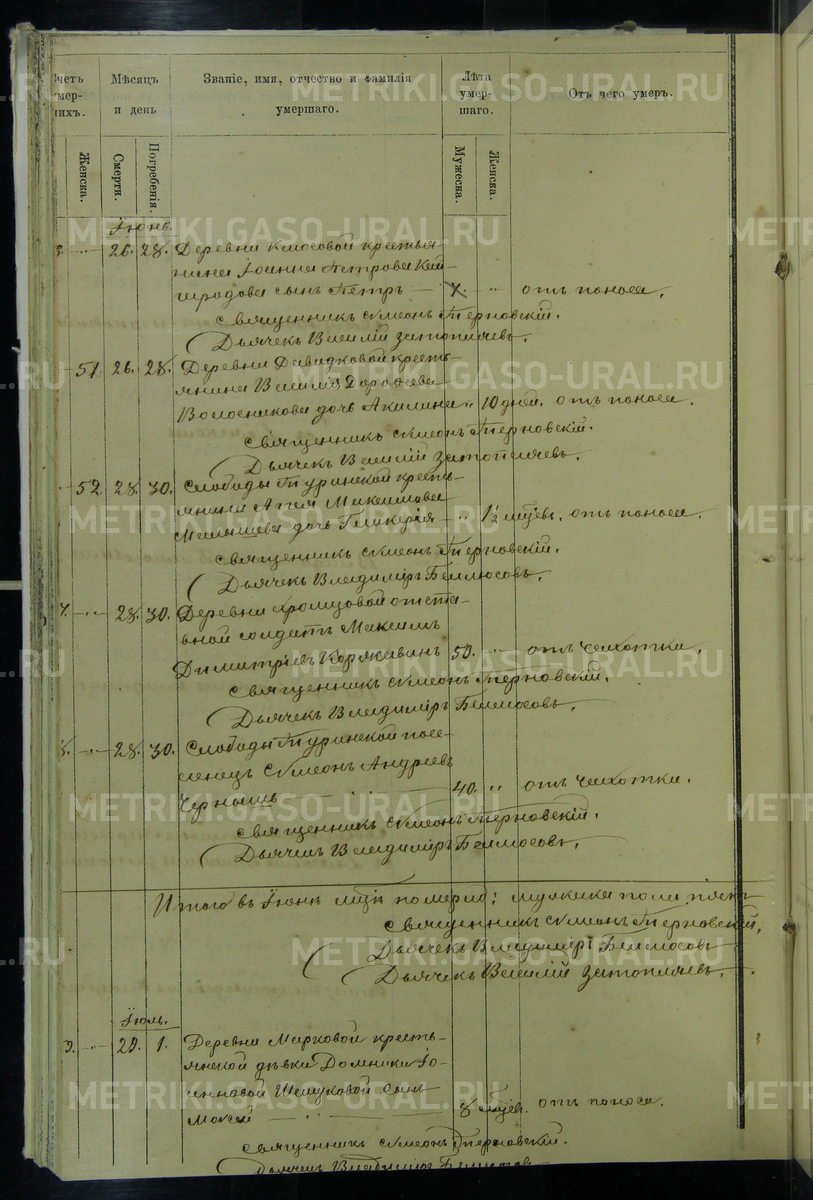 четъ
мер-
ихъ.
Мѣсяцъ
и день
Званіе, имя, отчество и фамилія
умершаго.
Лѣта
умер-
шаго.
Отъ чего умеръ.
Женска.
Смерти.
Погребенія.
Мужеска.
Женска.
Іюнь.
26. 28. Деревни крестья-
нина Іоанна Петрова Кай-
городова сынъ Петръ — " отъ поноса.
Священникъ Симеонъ Терновскій.
Дьячекъ Василій Затопляевъ.
51 26. 28. Деревни Давыдковой кресть-
янина Василія Дорофеева
Волосникова дочь Акилина " 10 дней. отъ поноса.
Священникъ Симеонъ Терновскій.
Дьячекъ Василій Затопляевъ.
52 28. 30. Слободы Туринской кресть-
янина Максимова
Малышева дочь Гликерія — " 1½ мѣсяц. отъ поноса.
Священникъ Симеонъ Терновскій.
Дьячекъ Владиміръ
28. 30. Деревни Хромцовой отста-
вной солдатъ Максимъ
Димитріевъ Корякинъ 50. " отъ чахотки.
Священникъ Симеонъ Терновскій.
Дьячекъ Владиміръ
28. 30. Слободы Туринской посе-
ленецъ Симеонъ Андреевъ
40. " отъ чахотки.
Священникъ Симеонъ Терновскій.
Дьячекъ Владиміръ
Итого въ Іюнѣ померло: мужеска пола пять
Священникъ Симеонъ Терновскій.
Дьячекъ Владиміръ
Дьячекъ Василій Затопляевъ.
Іюль.
29. 1. Деревни Марковой кресть-
янской дѣвки Домники Іо-
анновой сынъ
8 отъ поноса.
Священникъ Симеонъ Терновскій.
Дьячекъ Владиміръ
METRIKI.GASO-URAL.RU